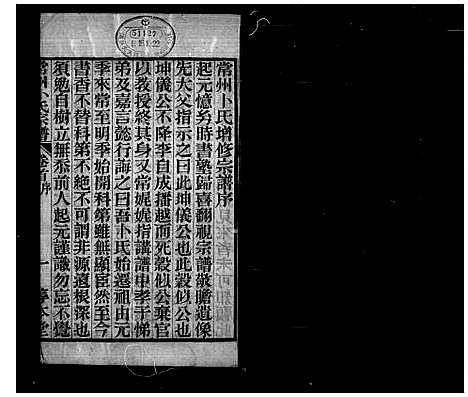 常州卜氏增修宗譜序
起元憶㓜時書塾歸喜翻視宗譜敬瞻遺像
先大父指示之曰此坤儀公也此穀似公也
坤儀公不降李自成播越而死穀似公棄官
以教授終其身又常娓娓指講譜中孝子悌
弟及嘉言懿行誨之曰吾卜氏始遷祖由元
季來常至明季始開科第雖無顯宦然至今
書香不替科第不絕不可謂非源遠根深也
須勉自樹立無忝前人起元謹識勿忘不覺
常州卜氏宗譜
卷首序
一
51127